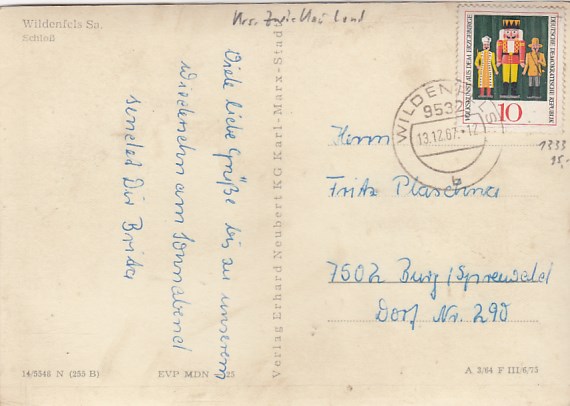 Wildenfels Sa.
Schloß
Krs. Zwickau Land
Viele liebe Grüße bis zu unserem
Wiedersehn am Sonnabend
sendet Dir Brita
Verlag Erhard Neubert KG Karl-Marx-Stadt
VOLKSKUNST AUS DEM ERZGEBIRGE
DEUTSCHE DEMOKRATISCHE REPUBLIK
10
WILDENFELS
9532
13.12.67.-12
b
1333
95,-
Herrn
Fritz
7502 Burg/Spreewald
Dorf Nr. 290
14/5548 N (255 B)
EVP MDN
25
A 3/64 F III/6/73